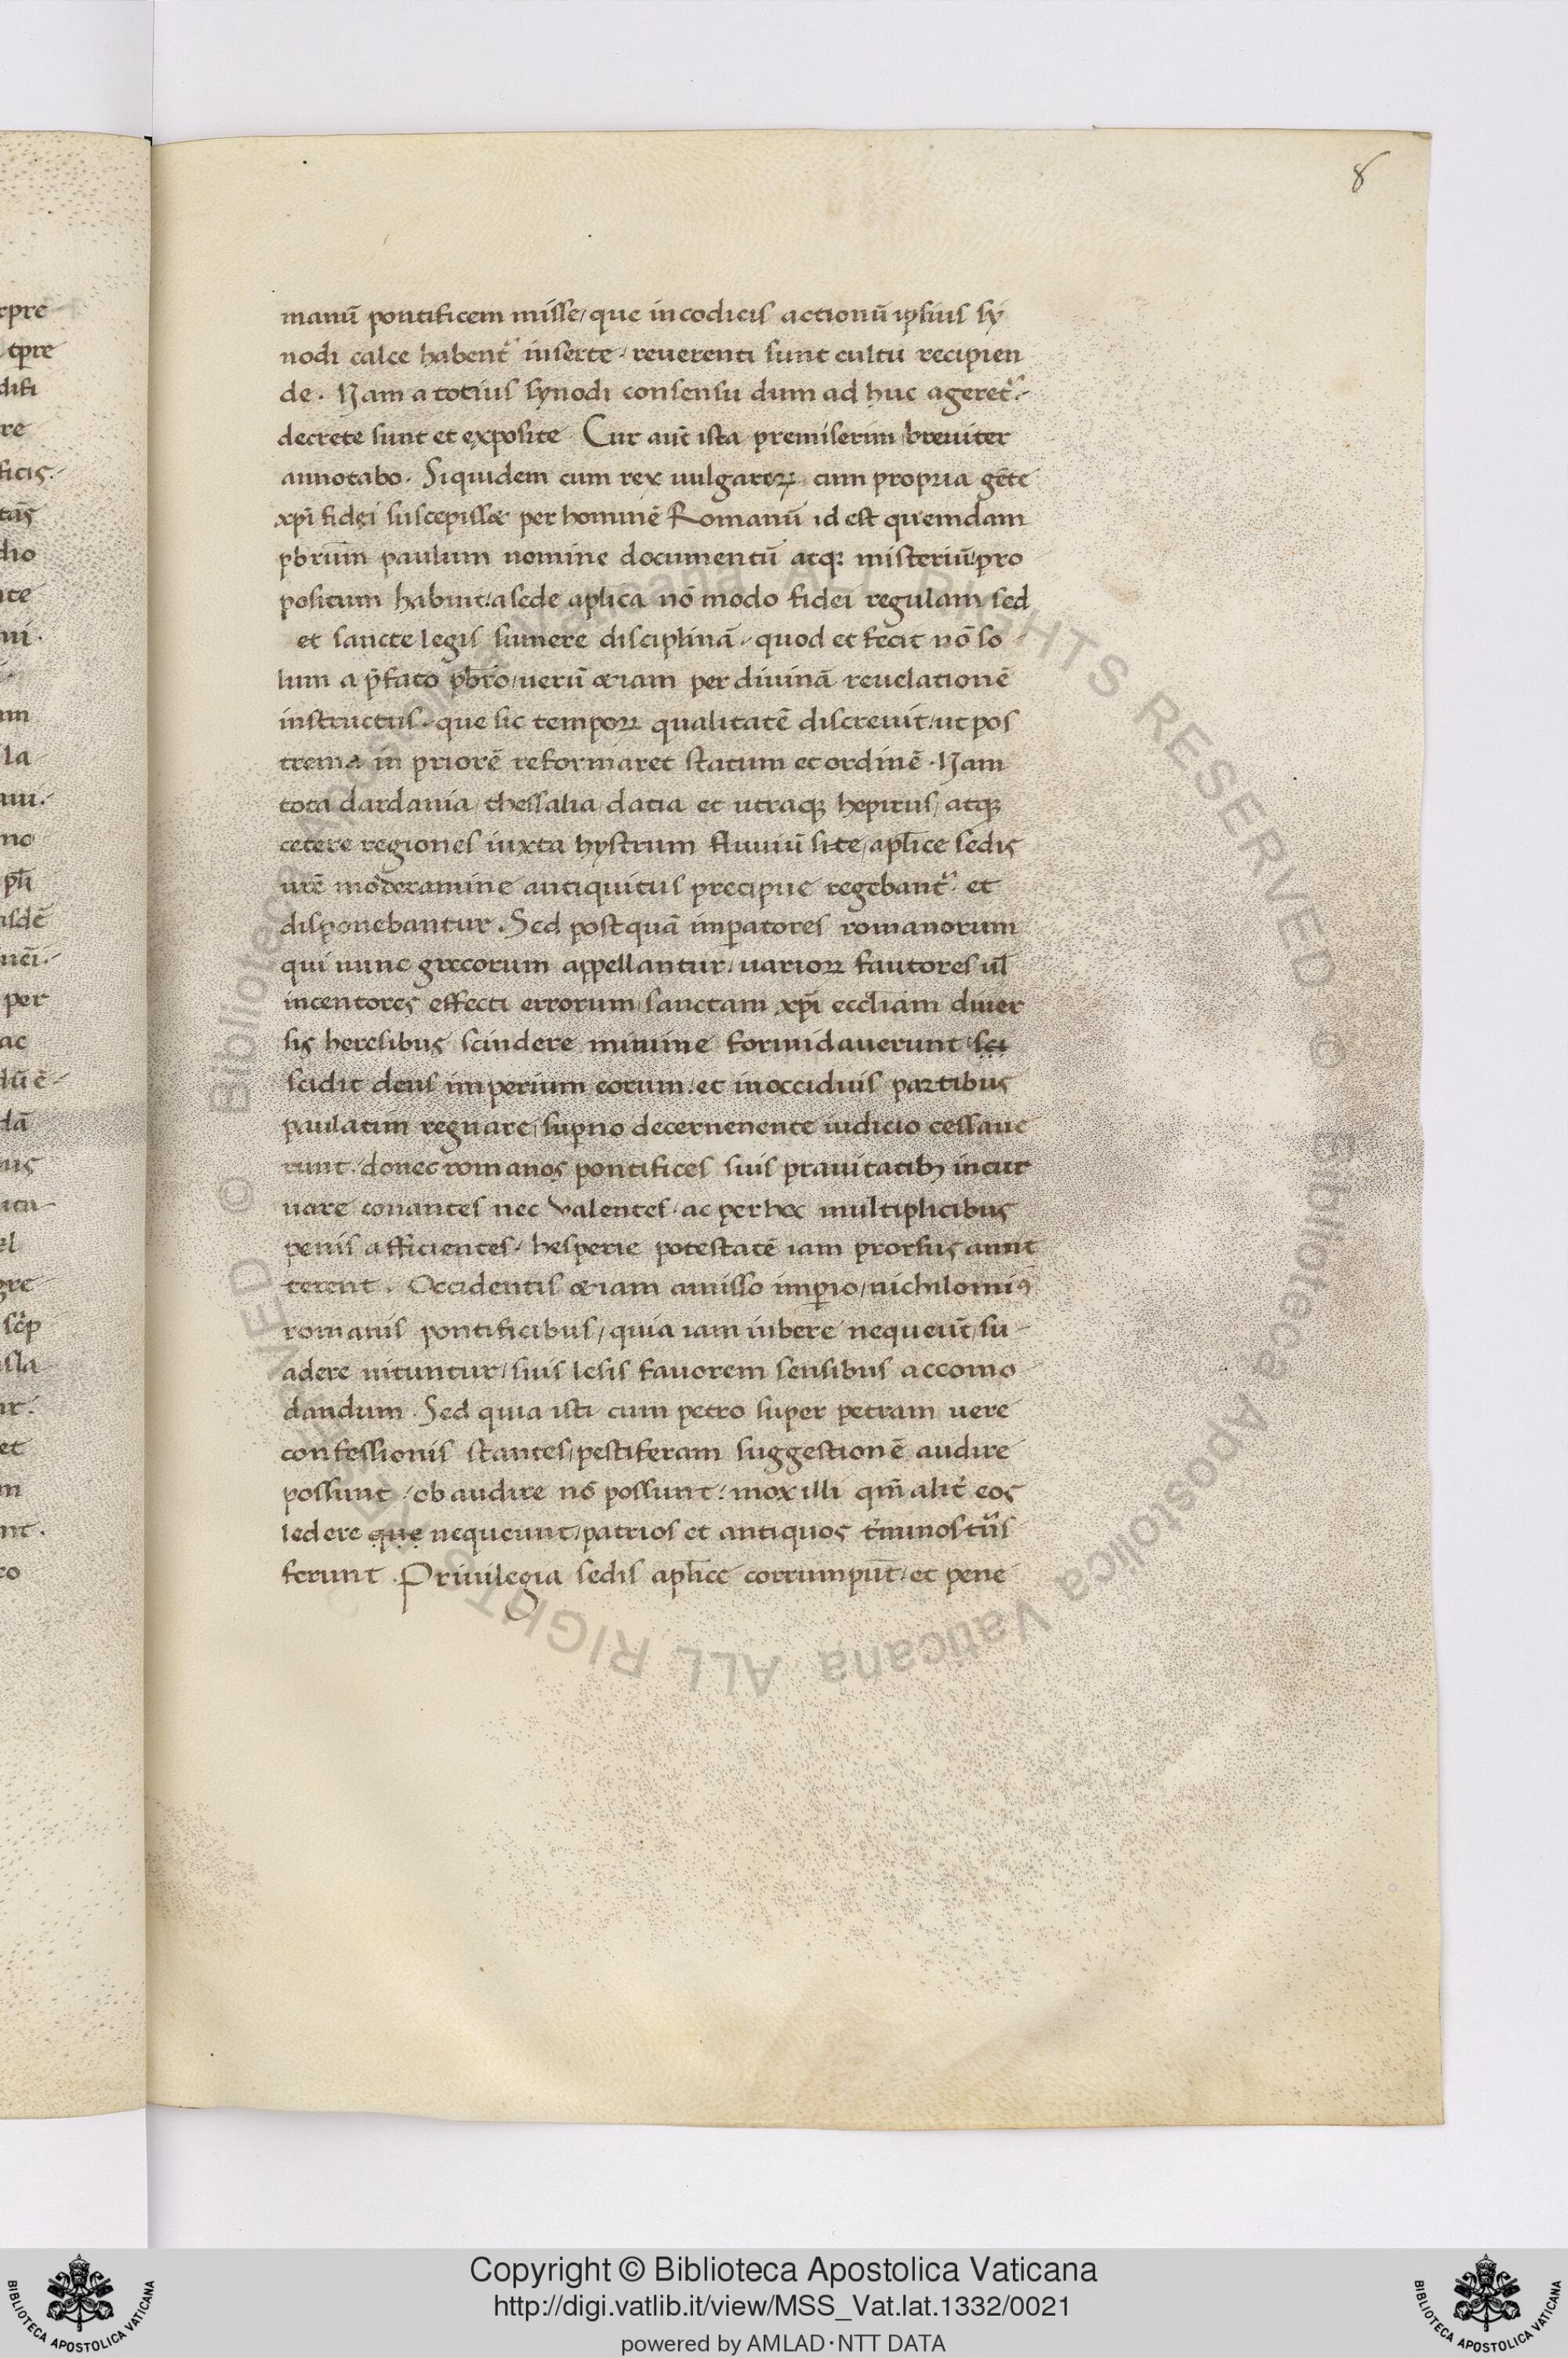 8
manū pontificem misse, que in codicis actionū ipsius sy
nodi calce habent᷑ inserte, reuerenti sunt cultu recipien
de. Nam a totius synodi consensu dum ad huc ageret᷑,
decrete sunt et exposite. Cur aut̄ ista premiserim breuiter
annotabo. Siquidem cum rex uulgareꝝ cum propria gēte
xp̄i fidei suscepissæ per hominē Romanū id est quemdam
pbrūm paulum nomine documentū atqꝫ misteriū pro
positum habuit, a sede aplica nō modo fidei regulam sed
et sancte legis sumere disciplinā, quod et fecit nō so
lum a p̄fato pb̄ro, uerū ætiam per diuinā reuelationē
instructus. que sic tempoꝝ qualitatē discreuit, ut pos
trema in priorē reformaret statum et ordinē. Nam
tota dardania, thessalia, datia et utraqꝫ hepirus, atqꝫ
cetere regiones iuxta hystrum fluuiū site, apl̄ice sedis
urē moderamine antiquitus precipue regebant᷑ et
disponebantur. Sed postquā imp̄atores romanorum
qui nunc grecorum appellantur, uarioꝝ fautores ul̄
incentores effecti errorum, sanctam xp̄i eccl̄iam diuer
sis heresibus scindere minime formidauerunt, sci
scidit deus imperium eorum, et in occiduis partibus
paulatim regnare, sup̄no decernenente iudicio cessaue
runt, donec romanos pontifices suis prauitatibꝫ incur
uare conantes nec valentes, ac per hoc multiplicibus
penis afficientes, hesperie potestatē iam prorsus amit
terent. Occidentis ætiam amisso imp̄io, nichilomiꝰ
romanis pontificibus, quia iam iubere nequeūt, su
adere nituntur, suis lesis fauorem sensibus accomo
dandum. Sed quia isti cum petro super petram uere
confessionis stantes, pestiferam suggestionē audire
possunt, ob audire nō possunt, mox illi qm̄ alit̄ eos
ledere que nequeunt, patrios et antiquos t̄minos tn̄s
ferunt. Priuilegia sedis apl̄ice corrumpūt, et pene
Copyright © Biblioteca Apostolica Vaticana
http://digi.vatlib.it/view/MSS_Vat.lat.1332/0021
powered by AMLAD·NTT DATA